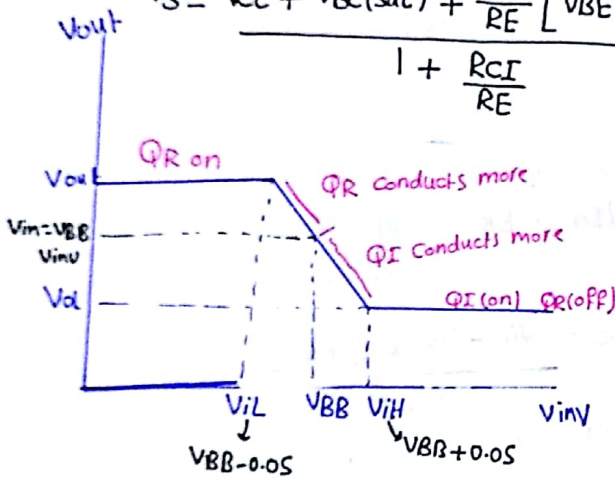 S = RC + VBC(sat) + [VBE
RE
1 + RCI
RE
Vout
QR on
Vout
QR Conducts more
Vin=VBB
Vinv
QI Conducts more
Vol
QI(on) QR(off)
ViL VBB ViH Vinv
VBB-0.05 VBB+0.05